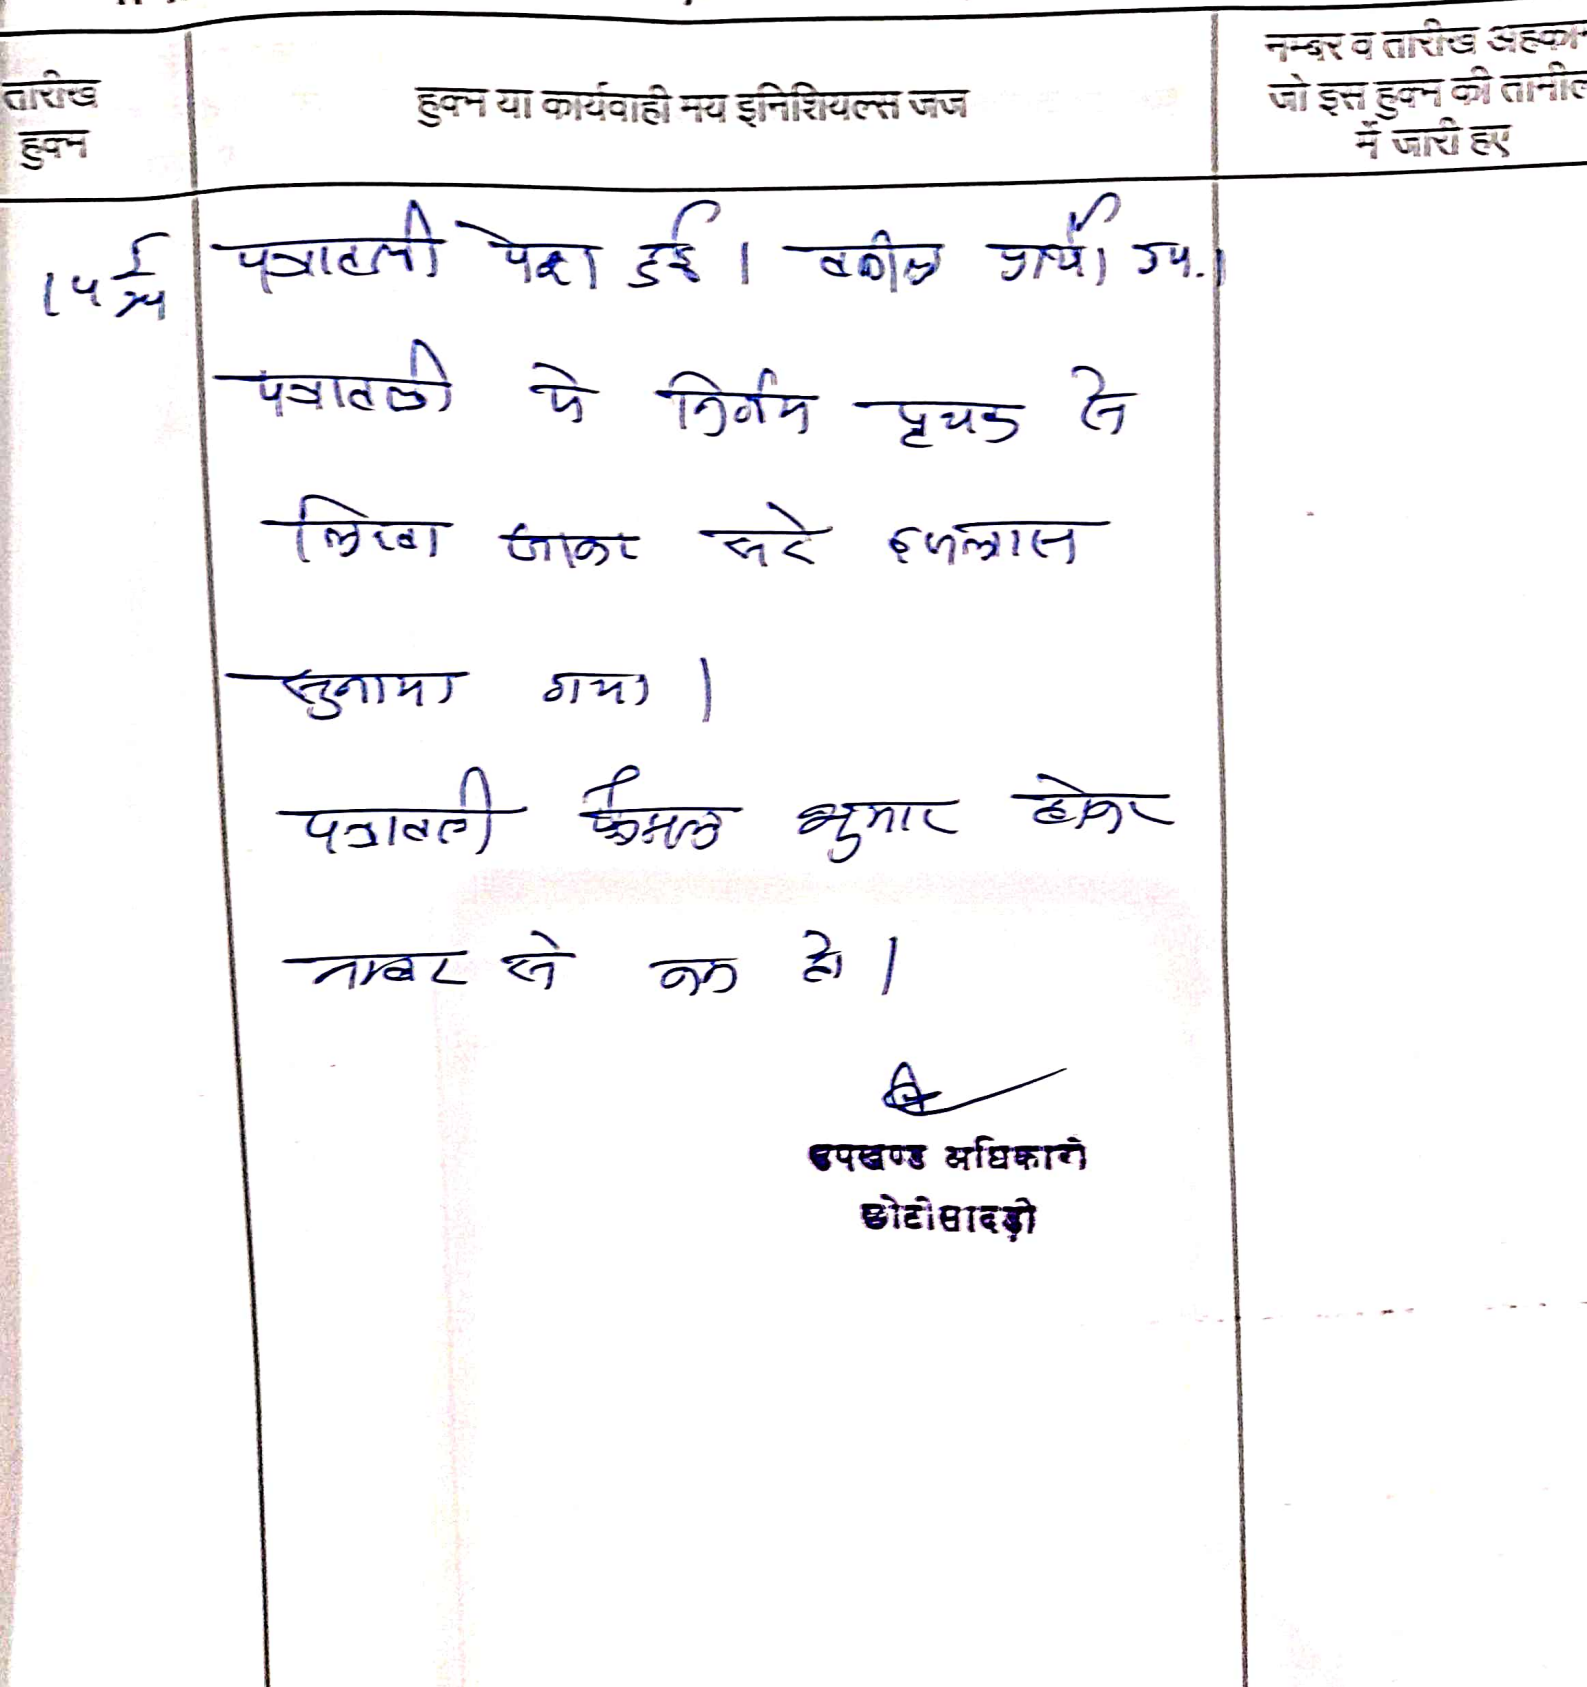 तारीख
हुक्म
हुक्म या कार्यवाही मय इनिशियल्स जज
नम्बर व तारीख अहकाम
जो इस हुक्म की तामील
में जारी हुए
पत्रावली पेश हुई। वकील प्रार्थी उप.।
पत्रावली मे निर्णय पृथक से
लिखा जाकर सरे इजलास
सुनाया गया।
पत्रावली फैसल शुमार होकर
नम्बर से कम हो।
उपखण्ड अधिकारी
छोटीसादड़ी